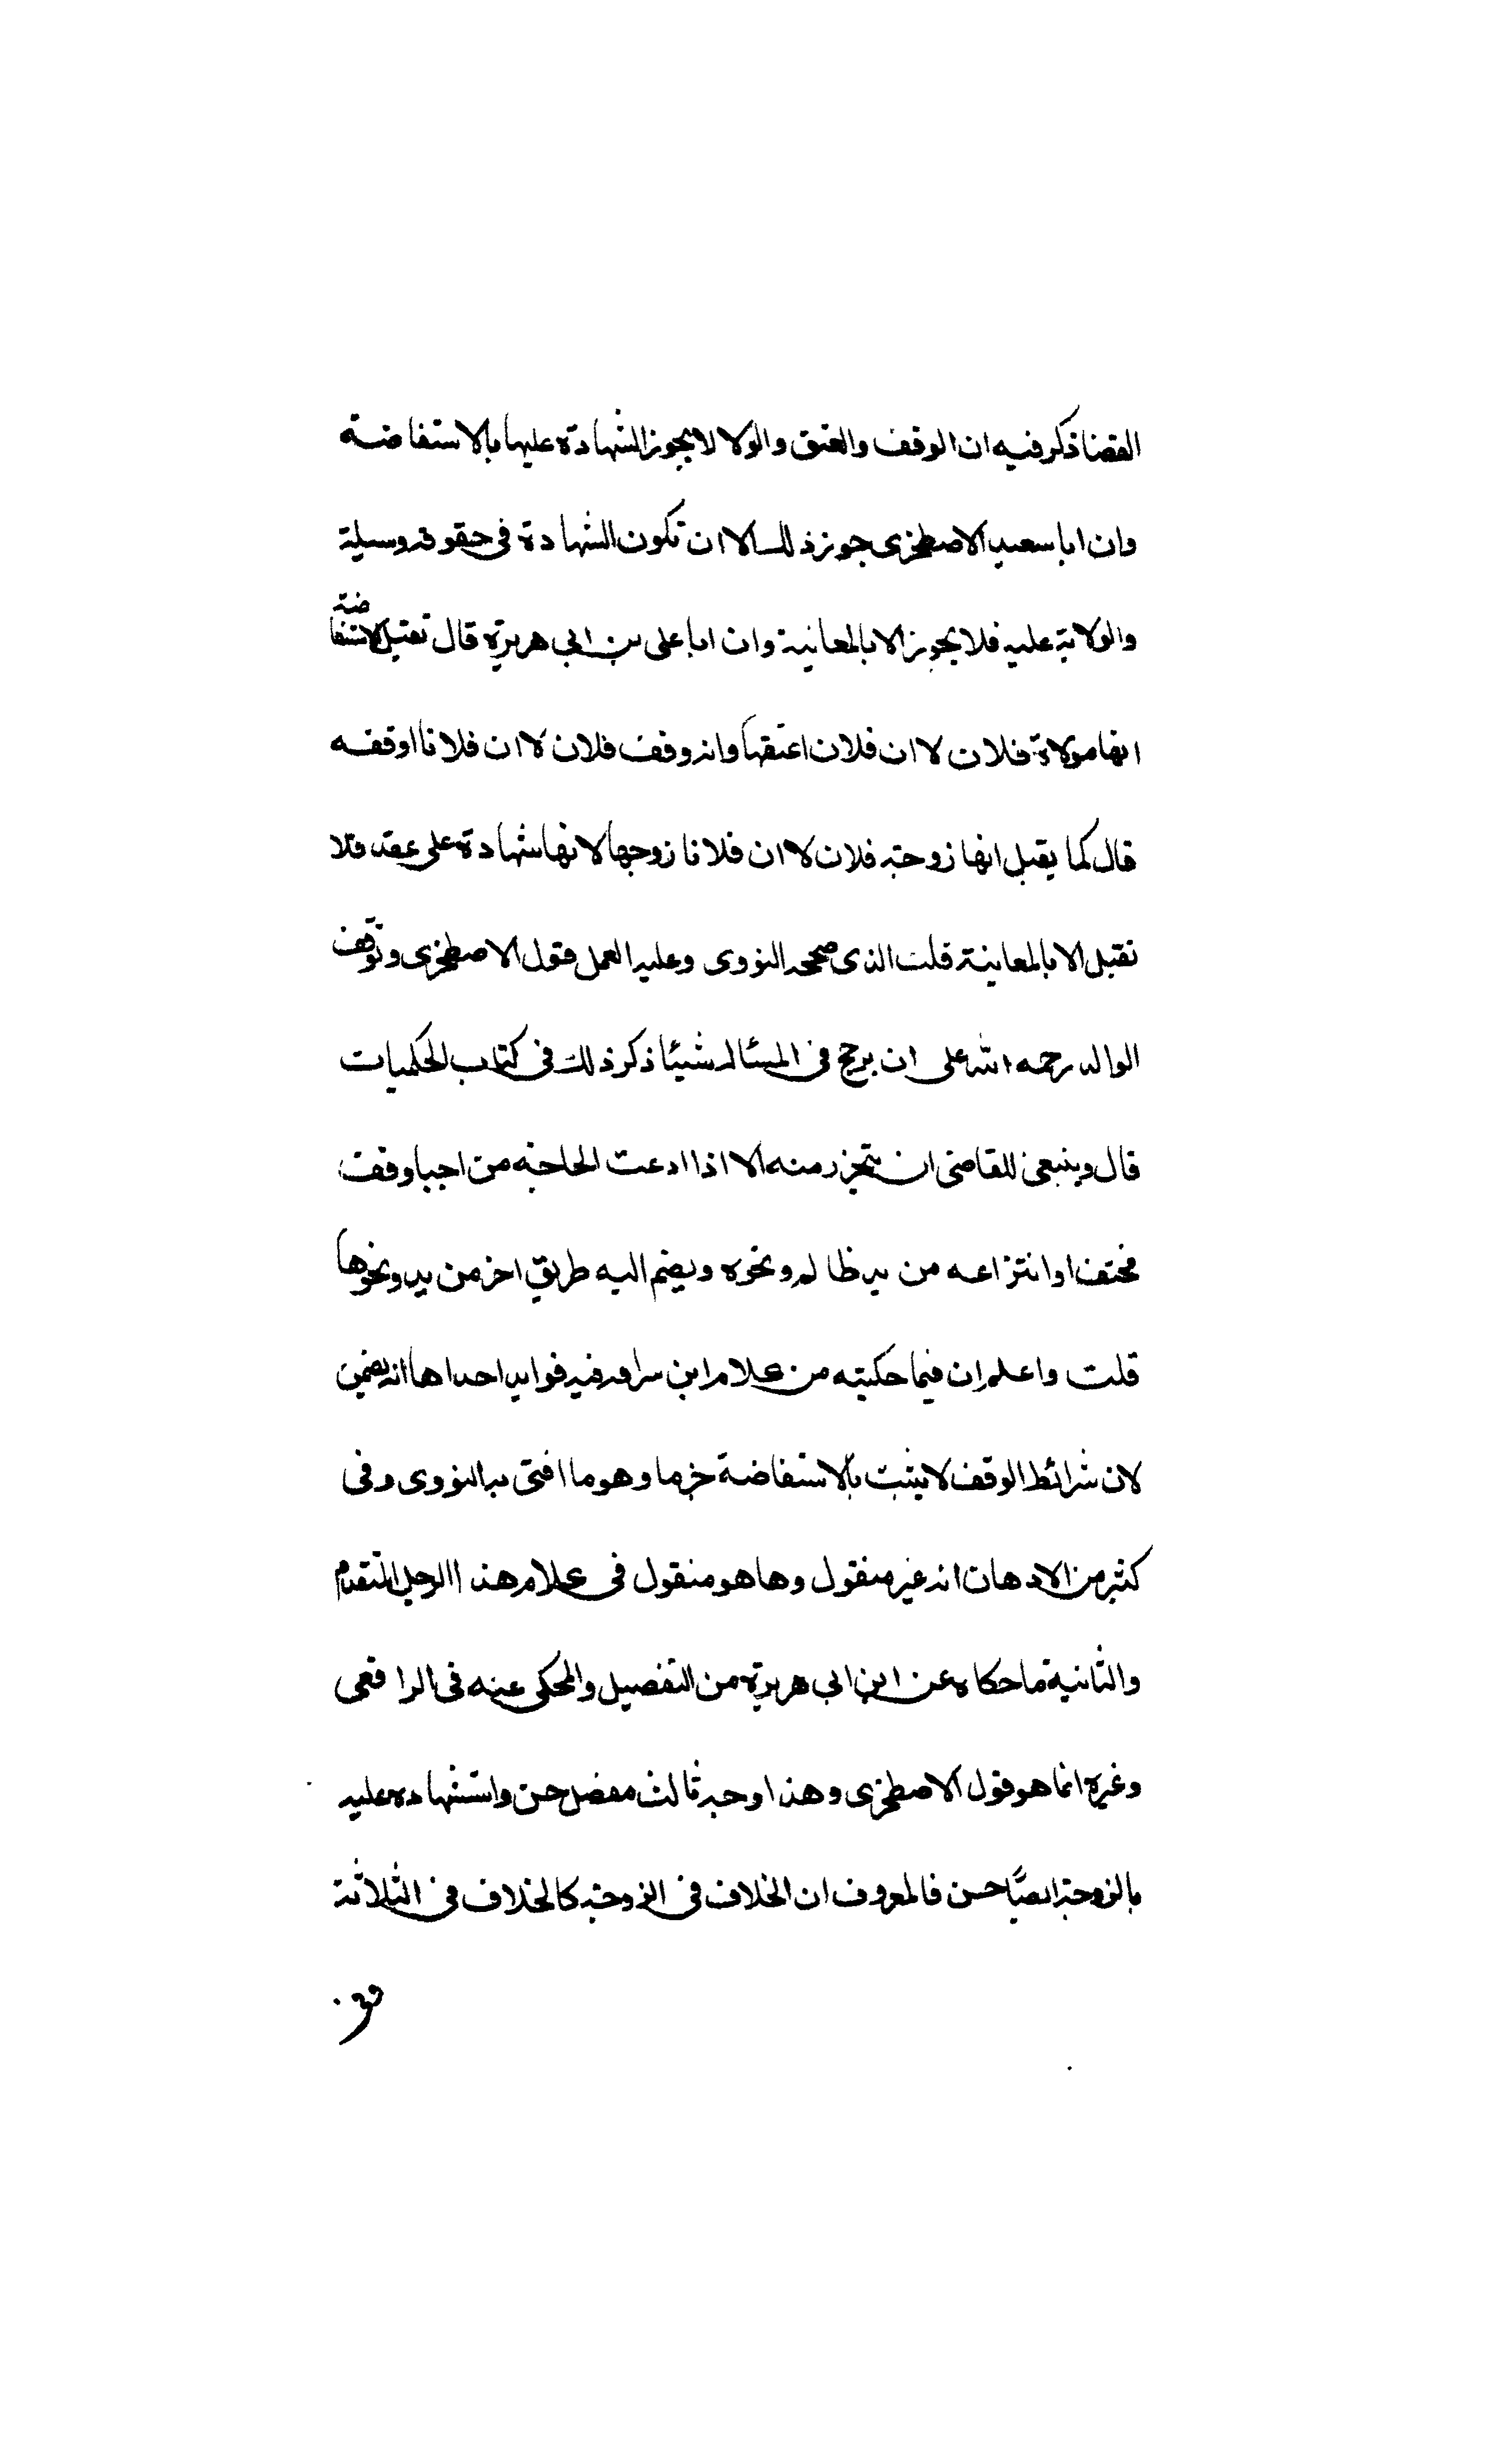 القضا ذكر فيه ان الوقف والعتق والولا لا يجوز الشهادة عليها بالاستفاضة
وان ابا سعيد الاصطخرى جوز ذلك الا ان تكون الشهادة فى حقوقه وسبلية
والولاية عليه فلا يجوز الا بالمعانية وان ابا على بن ابي هريرة قال تقبل الاستفاضة
انها مولاة فلان لا ان فلان اعتقها وانه وقف فلان لا ان فلانا اوقفه
قال كما يقبل انها زوجته فلان لا ان فلانا زوجها لانها شهادة على عقد فلا
تقبل الا بالمعاينة قلت الذى صححه النووى وعليه العمل قول الاصطخرى وتوقف
الوالد رحمه الله على ان يرجح فى المسئاله شيئا ذكر ذلك فى كتاب الحكميات
قال وينبغى للقاضى ان يتحرز منه الا اذا ادعت الحاجة من احبا وقف
مختف او انتزاعه من يد ظالم ونحوه ويضم اليه طريق اخر من يد ونحوها
قلت واعلم ان فيما حكيته من علام ابن سراقه فيه فوايد احداها انه يضمن
لان شرائط الوقف لا يثبت بالاستفاضة جزما وهو ما افتى به النووى وفى
كثير من الادهان انه غير منقول وها هو منقول فى علام هذا الرجل المتقدم
والثانية ما حكاه عن ابن ابي هريرة من التفصيل والمحكى عنه فى الرافعى
وغيره انما هو قول الاصطخرى وهذا وجه ثالث مفضل حسن واستشهاده عليه
بالزوجة ايضا حسن فالمعروف ان الخلاف فى الزوجة كالخلاف فى الثلاثة